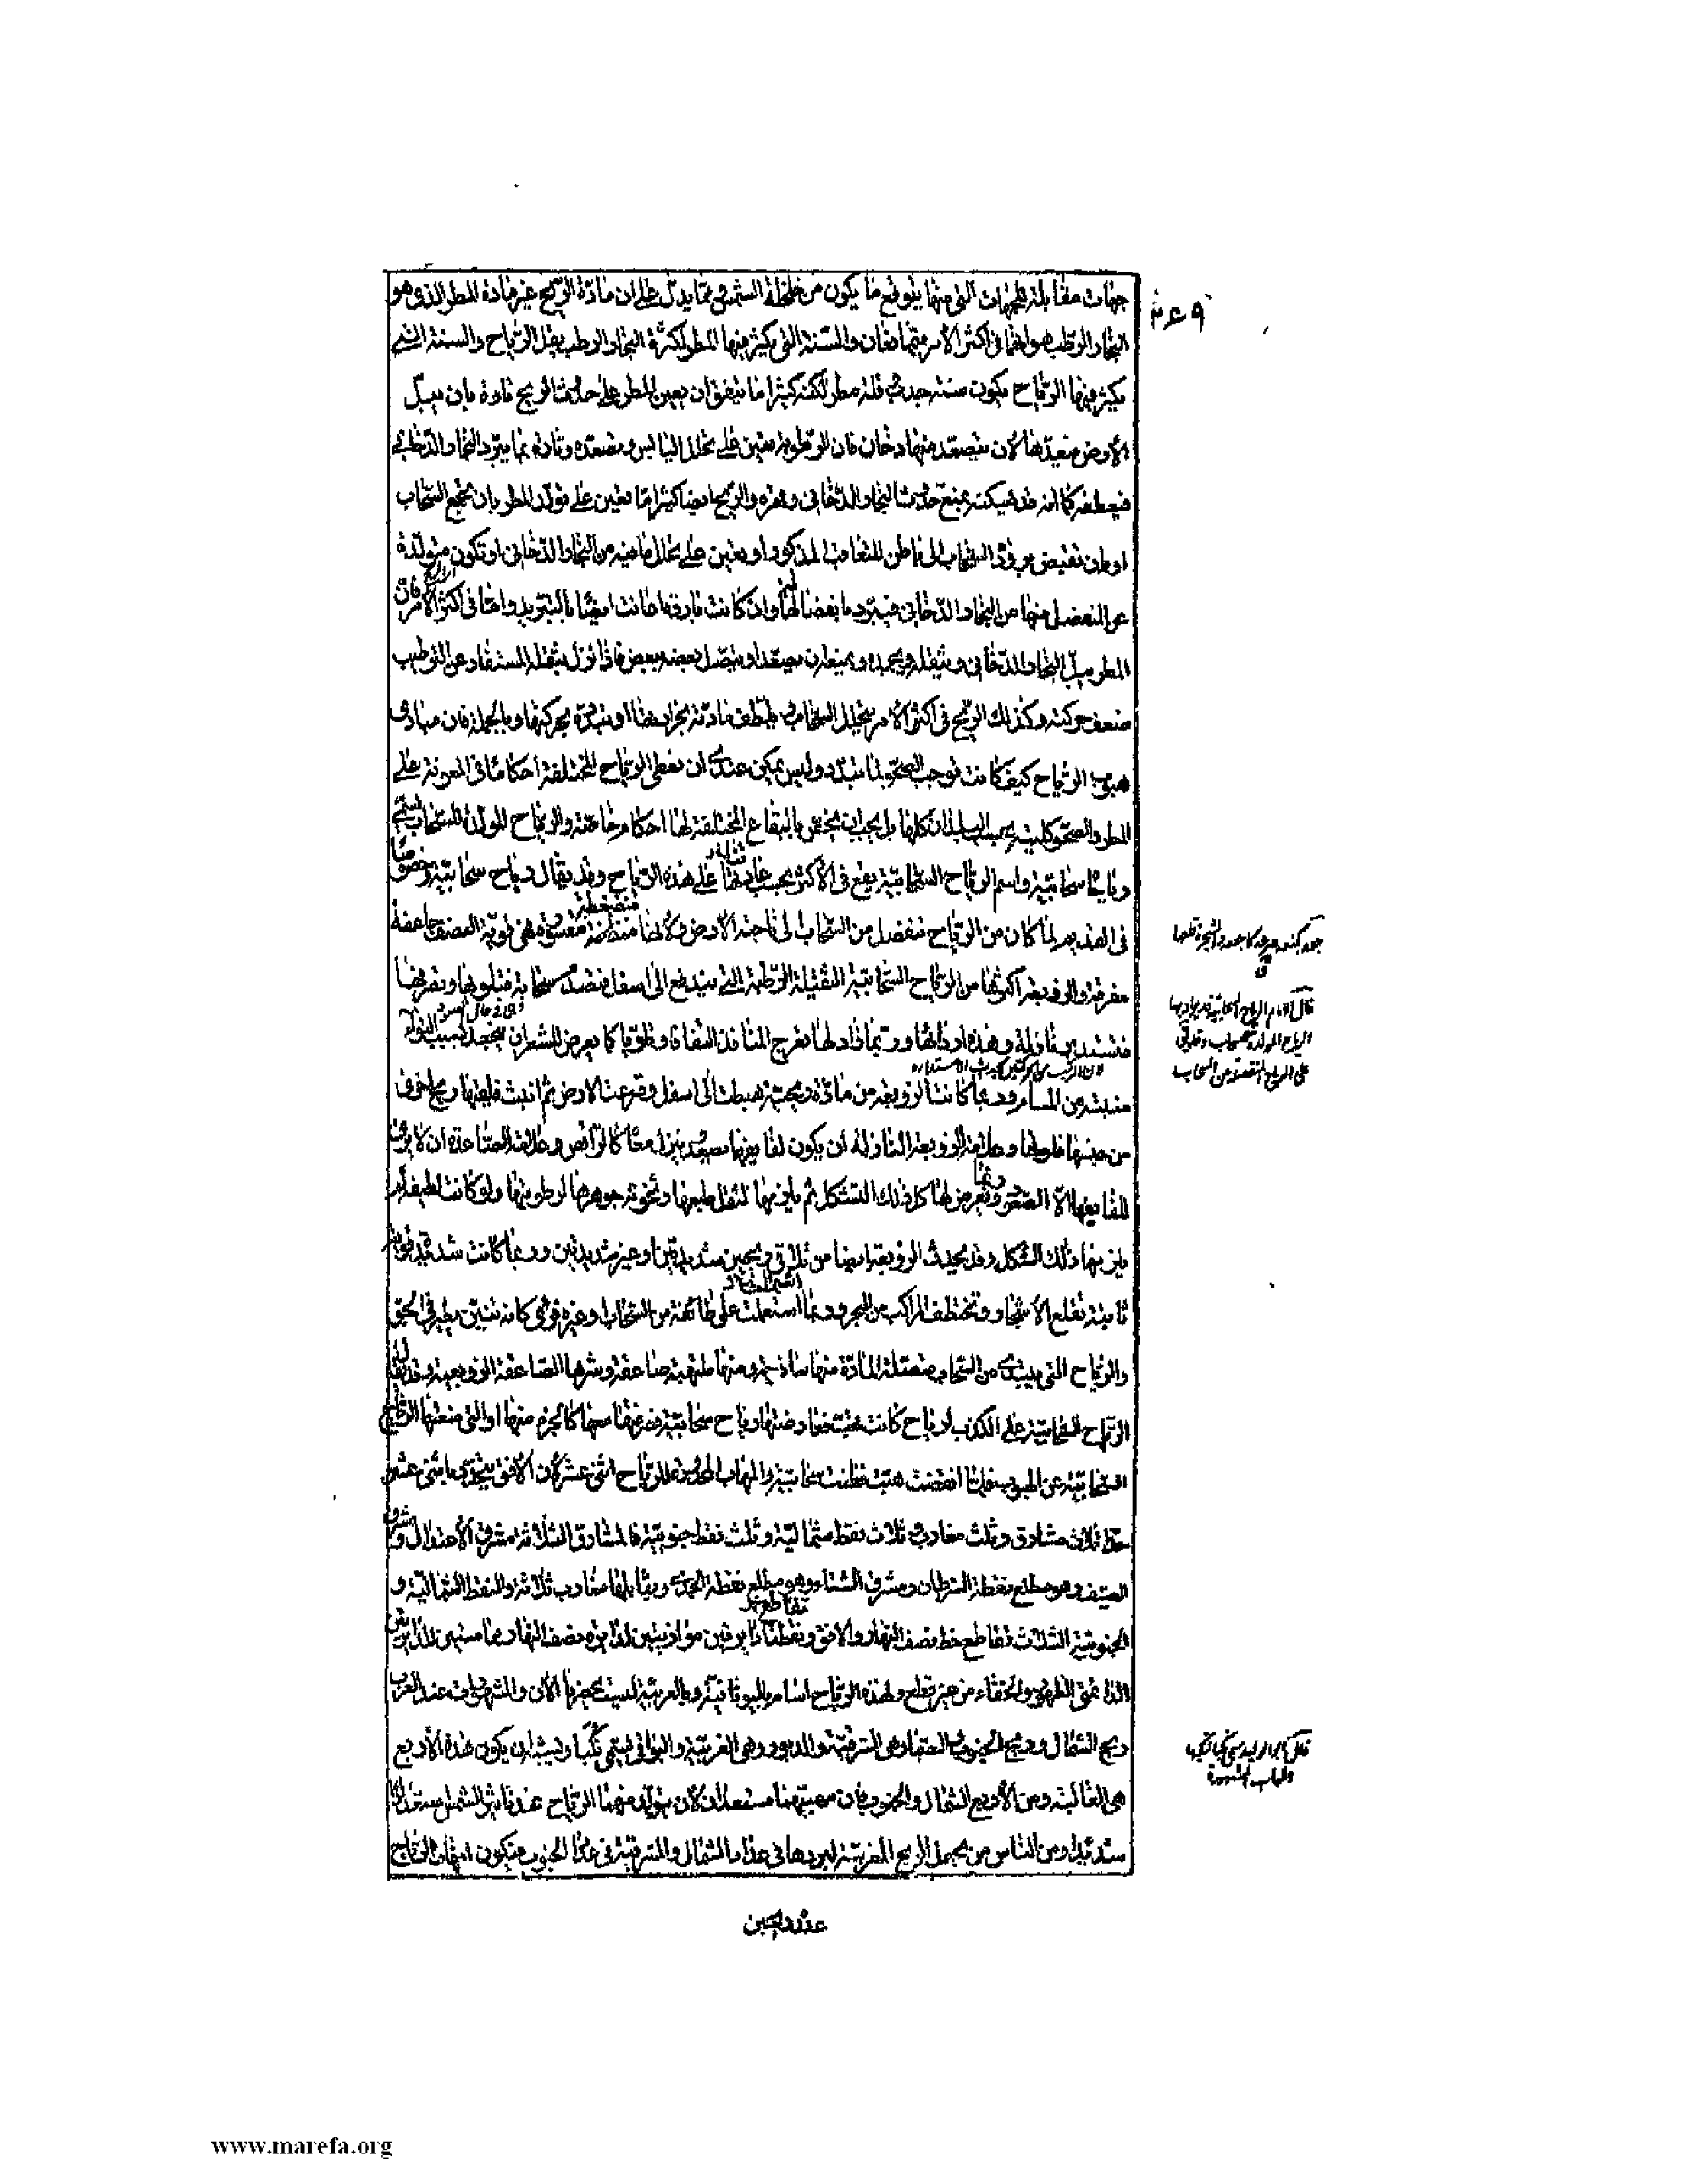 جهات مقابلة للجهات التي منها يتوقع ما يكون من خلخلة الشمس ومما يدل على ان مادة الريح غير مادة المطر الذي هو
البخار الرطب هو انهما في اكثر الامر يتمانعان والسنة التي يكثر فيها المطر لكثرة البخار الرطب يقل الرياح والسنة التي
يكثر فيها الرياح يكون سنة جدب وقلة مطر لكنه كثيرا ما يتفق ان يعين المطر على حدوث الريح تارة بان يبل
الارض فيعدها لان يتصعد منها دخان فان الرطوبة تعين على تحلل اليابس وتصعده وتارة بما يبرد البخار الدخاني
فيعطفه كما انه قد يمنع حدوث البخار الدخاني ويقهره والريح ايضا كثيرا ما تعين على تولد المطر بان تجمع السحاب
او بان تقبض برودة السحاب الى باطن للتعاقب المذكور او يعين على تحلل ما فيه من البخار الدخاني او تكون متولدة
عن المنفصل منها من البخار الدخاني فيبرد ما بعضا لها وان كانت فارقة اعانت ايضا بالتبريد واما في اكثر الامر فان
المطر يبل البخار الدخاني ويثقله ويجمده ويمنعه ان يصعد او يتصل بعضه ببعض فاذا نزل بثقله المستفاد عن الترطيب
ضعف حركته وكذلك الريح في اكثر الامر يحلل السحاب ويلطف مادته بحرارتها او يبدده بحركتها وبالجملة فان مبادي
هبوب الرياح كيف كانت توجب الصحو لما يبدد وليس يمكن عندي ان نعطي الرياح المختلفة احكاما في المعونة على
المطر والصحو كلية بحسب البلدان كلها بل يجب ان يختص بالبقاع المختلفة لها احكام خاصة والرياح المولدة للسحاب تسمى
رياحا سحابية واسم الرياح السحابية يقع في الاكثر بحسب عادتنا على هذه الرياح وقد يقال رياح سحابية وخصوصا
في القديم لما كان من الرياح تنفصل من السحاب الى ناحية الارض ولانها منضغطة مقسورة فهي قوية العصف خاصة
مفرقة والزوبعة اكثرها من الرياح السحابية الثقيلة الرطبة التي يندفع الى اسفل فتصدك سحابة فتلويها وتصرفها
فتستدير نازلة وهذه اردأها وربما زادها تعرج المنافذ التفافا وتلويا كما يعرض للشعر ان يتجعد بسبب التواء
منبته من المسام وربما كانت الزوبعة من مادة ريحية هبطت الى اسفل وقرعت الارض ثم انثنت فلقيتها ريح اخرى
من جنسها فلوتها وعلامة الزوبعة النازلة ان يكون لفائفها تصعد وتنزل معا كالراقص وعلامة الصاعدة ان لا يرى
للفائفها الا الصعود وربما يعرض لها كل ذلك التشكل ثم يلزمها لثقل طبعها وثخونة جوهرها لرطوبتها ولو كانت لطيفة لم
يلزمها ذلك الشكل وقد يحدث الزوبعة ايضا من تلاقي ريحين شديدتين او غير شديدتين وربما كانت شديدة قوية
ثابتة تقلع الاشجار وتختطف المراكب من البحر وربما اشتملت على طائفة من السحاب او غيره فترى كانه تنين يطير في الجو
والرياح التي يبتدئ من السحاب متصلة المادة منها ساذجة ومنها ملتهبة صاعقة وشرها الصاعقة الزوبعية وقد يقال
الرياح السحابية على الكذب لرياح كانت تهب فعارضتها رياح سحابية فصرفتها معها كالجزء منها او التي منعتها الرياح
السحابية عن الهبوب فلما انقضت هبت فظنت سحابية والمهاب المحدودة للرياح اثنى عشر لان الافق يتحدد باثنى عشر
حدا ثلاث مشارق وثلث مغارب ثلاث نقط شمالية وثلث نقط جنوبية فالمشارق الثلاثة مشرق الاعتدال ومشرق
الصيف وهو مطلع نقطة السرطان ومشرق الشتاء وهو مطلع نقطة الجدي ويقابلها مغارب ثلاثة والنقط الشمالية و
الجنوبية الثلاث تقاطع خط نصف النهار والافق ونقطتا تقاطع دائرتين موازيتين لدائرة نصف النهار مماستين للدائرتين
الدائمتي الظهور والخفاء من غير قطع ولهذه الرياح اسام باليونانية وبالعربية ليست تحضرنا الان والمشهورات عند العرب
ريح الشمال وريح الجنوب والصبا وهي الشرقية والدبور وهي الغربية والبواقي تسمى نكبا ويشبه ان يكون هذه الاربع
هي الغالبة ومن الاربع الشمال والجنوب فان مهبيهما مستعدان لان يتولد منهما الرياح عند تاثير الشمس استعدادا
شديدا ومن الناس من يجعل الريح المغربية لبردها في عداد الشمال والمشرقية في عداد الجنوب فيكون امهات الرياح
قال الامام الرياح السحابية قد يراد بها
الرياح المولدة للسحاب وقد يقال
على الرياح المنفصلة من السحاب
عند الحسين
www.marefa.org